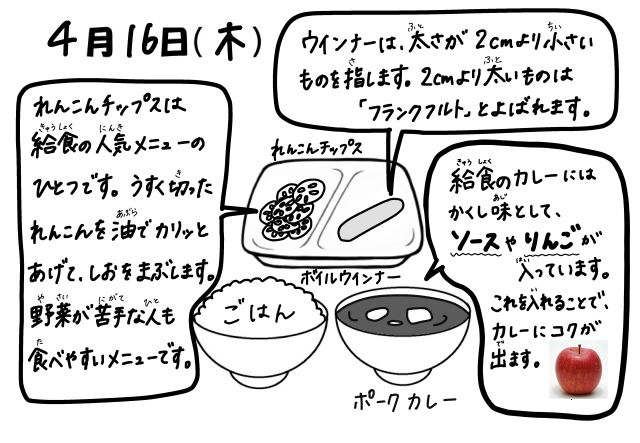 4月16日(木)
ウインナーは、太さが2cmより小さい
ものを指します。2cmより太いものは
「フランクフルト」とよばれます。
れんこんチップスは
給食の人気メニューの
ひとつです。うすく切った
れんこんを油でカリッと
あげて、しおをまぶします。
野菜が苦手な人も
食べやすいメニューです。
れんこんチップス
ボイルウインナー
ごはん
ポークカレー
給食のカレーには
かくし味として、
ソースやりんごが
入っています。
これを入れることで、
カレーにコクが
出ます。